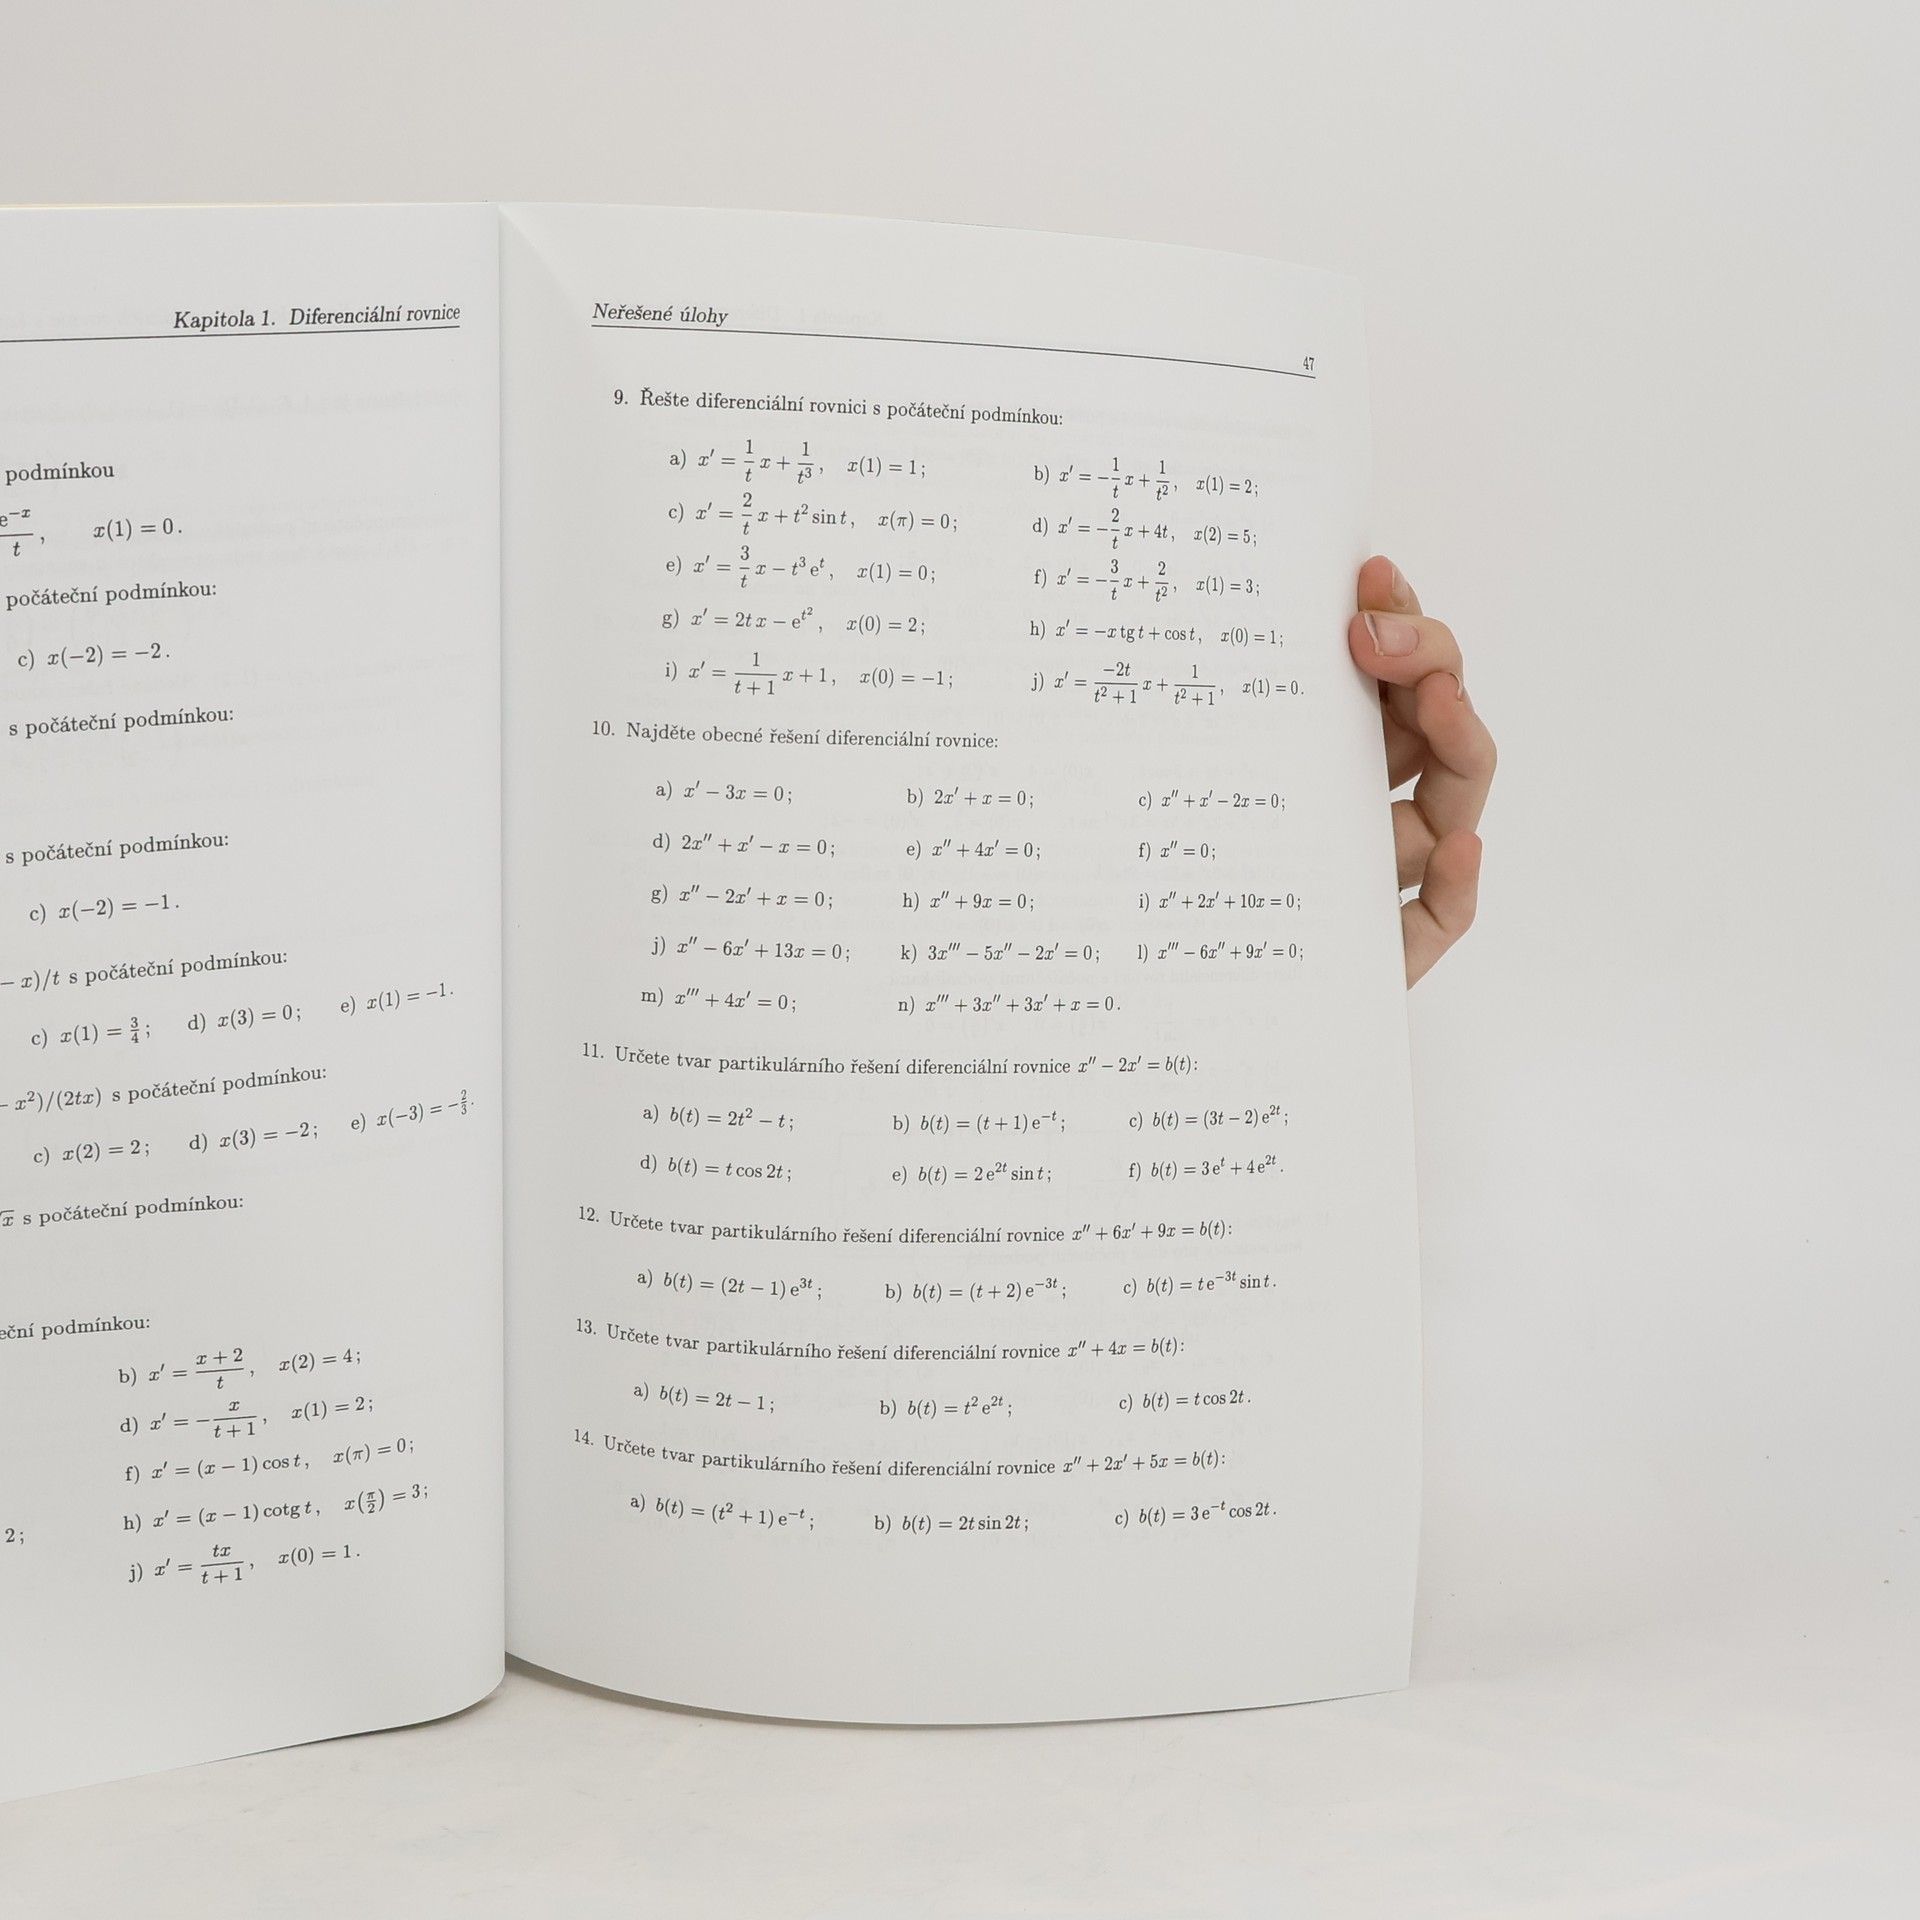 Kapitola 1. Diferenciální rovnice
podmínkou
e^{-x}/t, x(1) = 0.
počáteční podmínkou:
c) x(−2) = −2.
s počáteční podmínkou:
s počáteční podmínkou:
c) x(−2) = −1.
− x)/t s počáteční podmínkou:
c) x(1) = 3/4; d) x(3) = 0; e) x(1) = −1.
− x²)/(2tx) s počáteční podmínkou:
c) x(2) = 2; d) x(3) = −2; e) x(−3) = −2/3.
√x s počáteční podmínkou:
podmínkou:
b) x′ = (x + 2)/t, x(2) = 4;
d) x′ = −x/(t + 1), x(1) = 2;
f) x′ = (x − 1) cos t, x(π) = 0;
2; h) x′ = (x − 1) cotg t, x(π/2) = 3;
j) x′ = tx/(t + 1), x(0) = 1.
Neřešené úlohy 47
9. Řešte diferenciální rovnici s počáteční podmínkou:
a) x′ = 1/t x + 1/t³, x(1) = 1; b) x′ = −1/t x + 1/t², x(1) = 2;
c) x′ = 2/t x + t² sin t, x(π) = 0; d) x′ = −2/t x + 4t, x(2) = 5;
e) x′ = 3/t x − t³ e^t, x(1) = 0; f) x′ = −3/t x + 2/t², x(1) = 3;
g) x′ = 2t x − e^{t²}, x(0) = 2; h) x′ = −x tg t + cos t, x(0) = 1;
i) x′ = 1/(t + 1) x + 1, x(0) = −1; j) x′ = −2t/(t² + 1) x + 1/(t² + 1), x(1) = 0.
10. Najděte obecné řešení diferenciální rovnice:
a) x′ − 3x = 0; b) 2x′ + x = 0; c) x″ + x′ − 2x = 0;
d) 2x″ + x′ − x = 0; e) x″ + 4x′ = 0; f) x″ = 0;
g) x″ − 2x′ + x = 0; h) x″ + 9x = 0; i) x″ + 2x′ + 10x = 0;
j) x″ − 6x′ + 13x = 0; k) 3x‴ − 5x″ − 2x′ = 0; l) x‴ − 6x″ + 9x′ = 0;
m) x‴ + 4x′ = 0; n) x‴ + 3x″ + 3x′ + x = 0.
11. Určete tvar partikulárního řešení diferenciální rovnice x″ − 2x′ = b(t):
a) b(t) = 2t² − t; b) b(t) = (t + 1) e^{−t}; c) b(t) = (3t − 2) e^{2t};
d) b(t) = t cos 2t; e) b(t) = 2 e^{2t} sin t; f) b(t) = 3 e^t + 4 e^{2t}.
12. Určete tvar partikulárního řešení diferenciální rovnice x″ + 6x′ + 9x = b(t):
a) b(t) = (2t − 1) e^{3t}; b) b(t) = (t + 2) e^{−3t}; c) b(t) = t e^{−3t} sin t.
13. Určete tvar partikulárního řešení diferenciální rovnice x″ + 4x = b(t):
a) b(t) = 2t − 1; b) b(t) = t² e^{2t}; c) b(t) = t cos 2t.
14. Určete tvar partikulárního řešení diferenciální rovnice x″ + 2x′ + 5x = b(t):
a) b(t) = (t² + 1) e^{−t}; b) b(t) = 2t sin 2t; c) b(t) = 3 e^{−t} cos 2t.